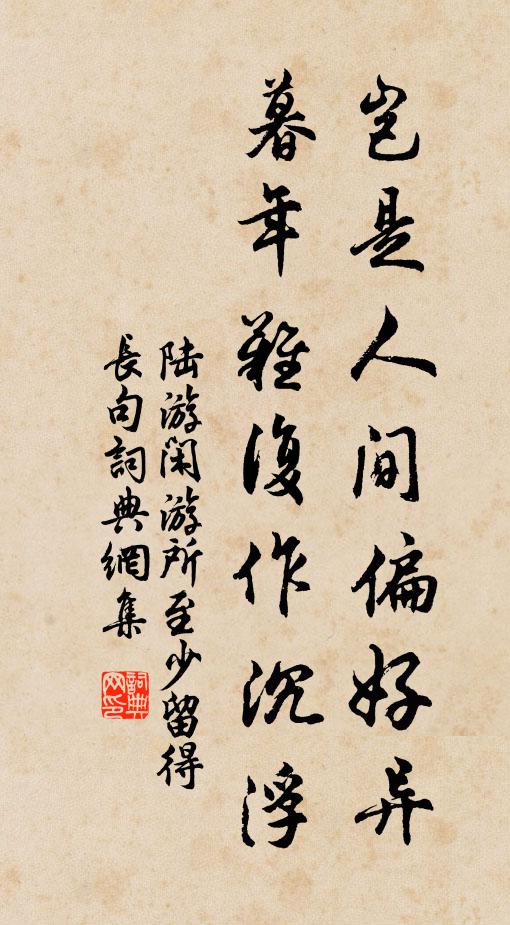 岂是人间偏好异
暮年难復作沉浮
陆游闲游所至少留得
長句詞典網集
詞典网印